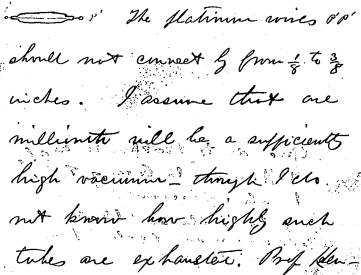 p' The platinum wires pp'
should not connect by from 1/8 to 3/8
inches. I assume that one
millionth will be a sufficiently
high vacuum – though I do
not know how highly such
tubes are exhausted. Prof